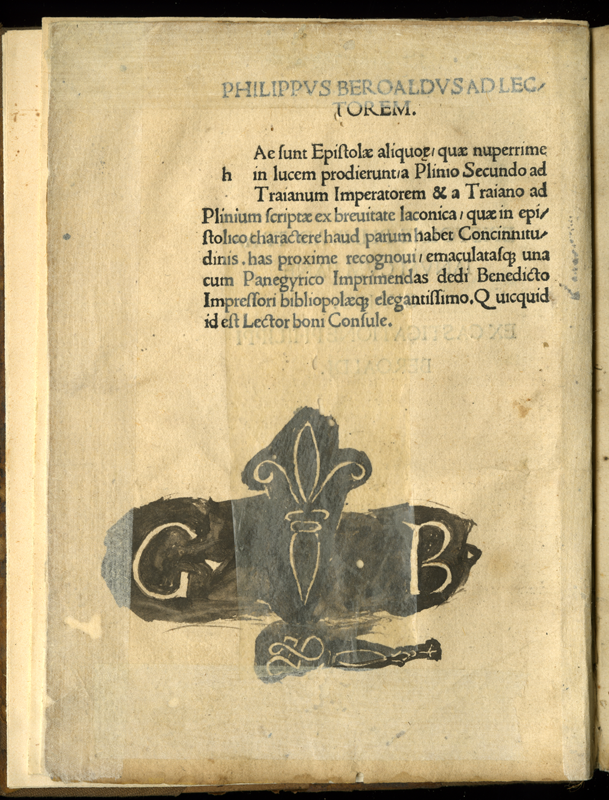 PHILIPPVS BEROALDVS AD LEC/
TOREM.
Ae sunt Epistolæ aliquoꝝ/ quæ nuperrime
h in lucem prodierunt/a Plinio Secundo ad
Traianum Imperatorem & a Traiano ad
Plinium scriptæ ex breuitate laconica/ quæ in epi/
stolico charactere haud parum habet Concinnitu/
dinis. has proxime recognoui/ emaculatasqꝫ una
cum Panegyrico Imprimendas dedi Benedicto
Impressori bibliopolæqꝫ elegantissimo. Quicquid
id est Lector boni Consule.
G B